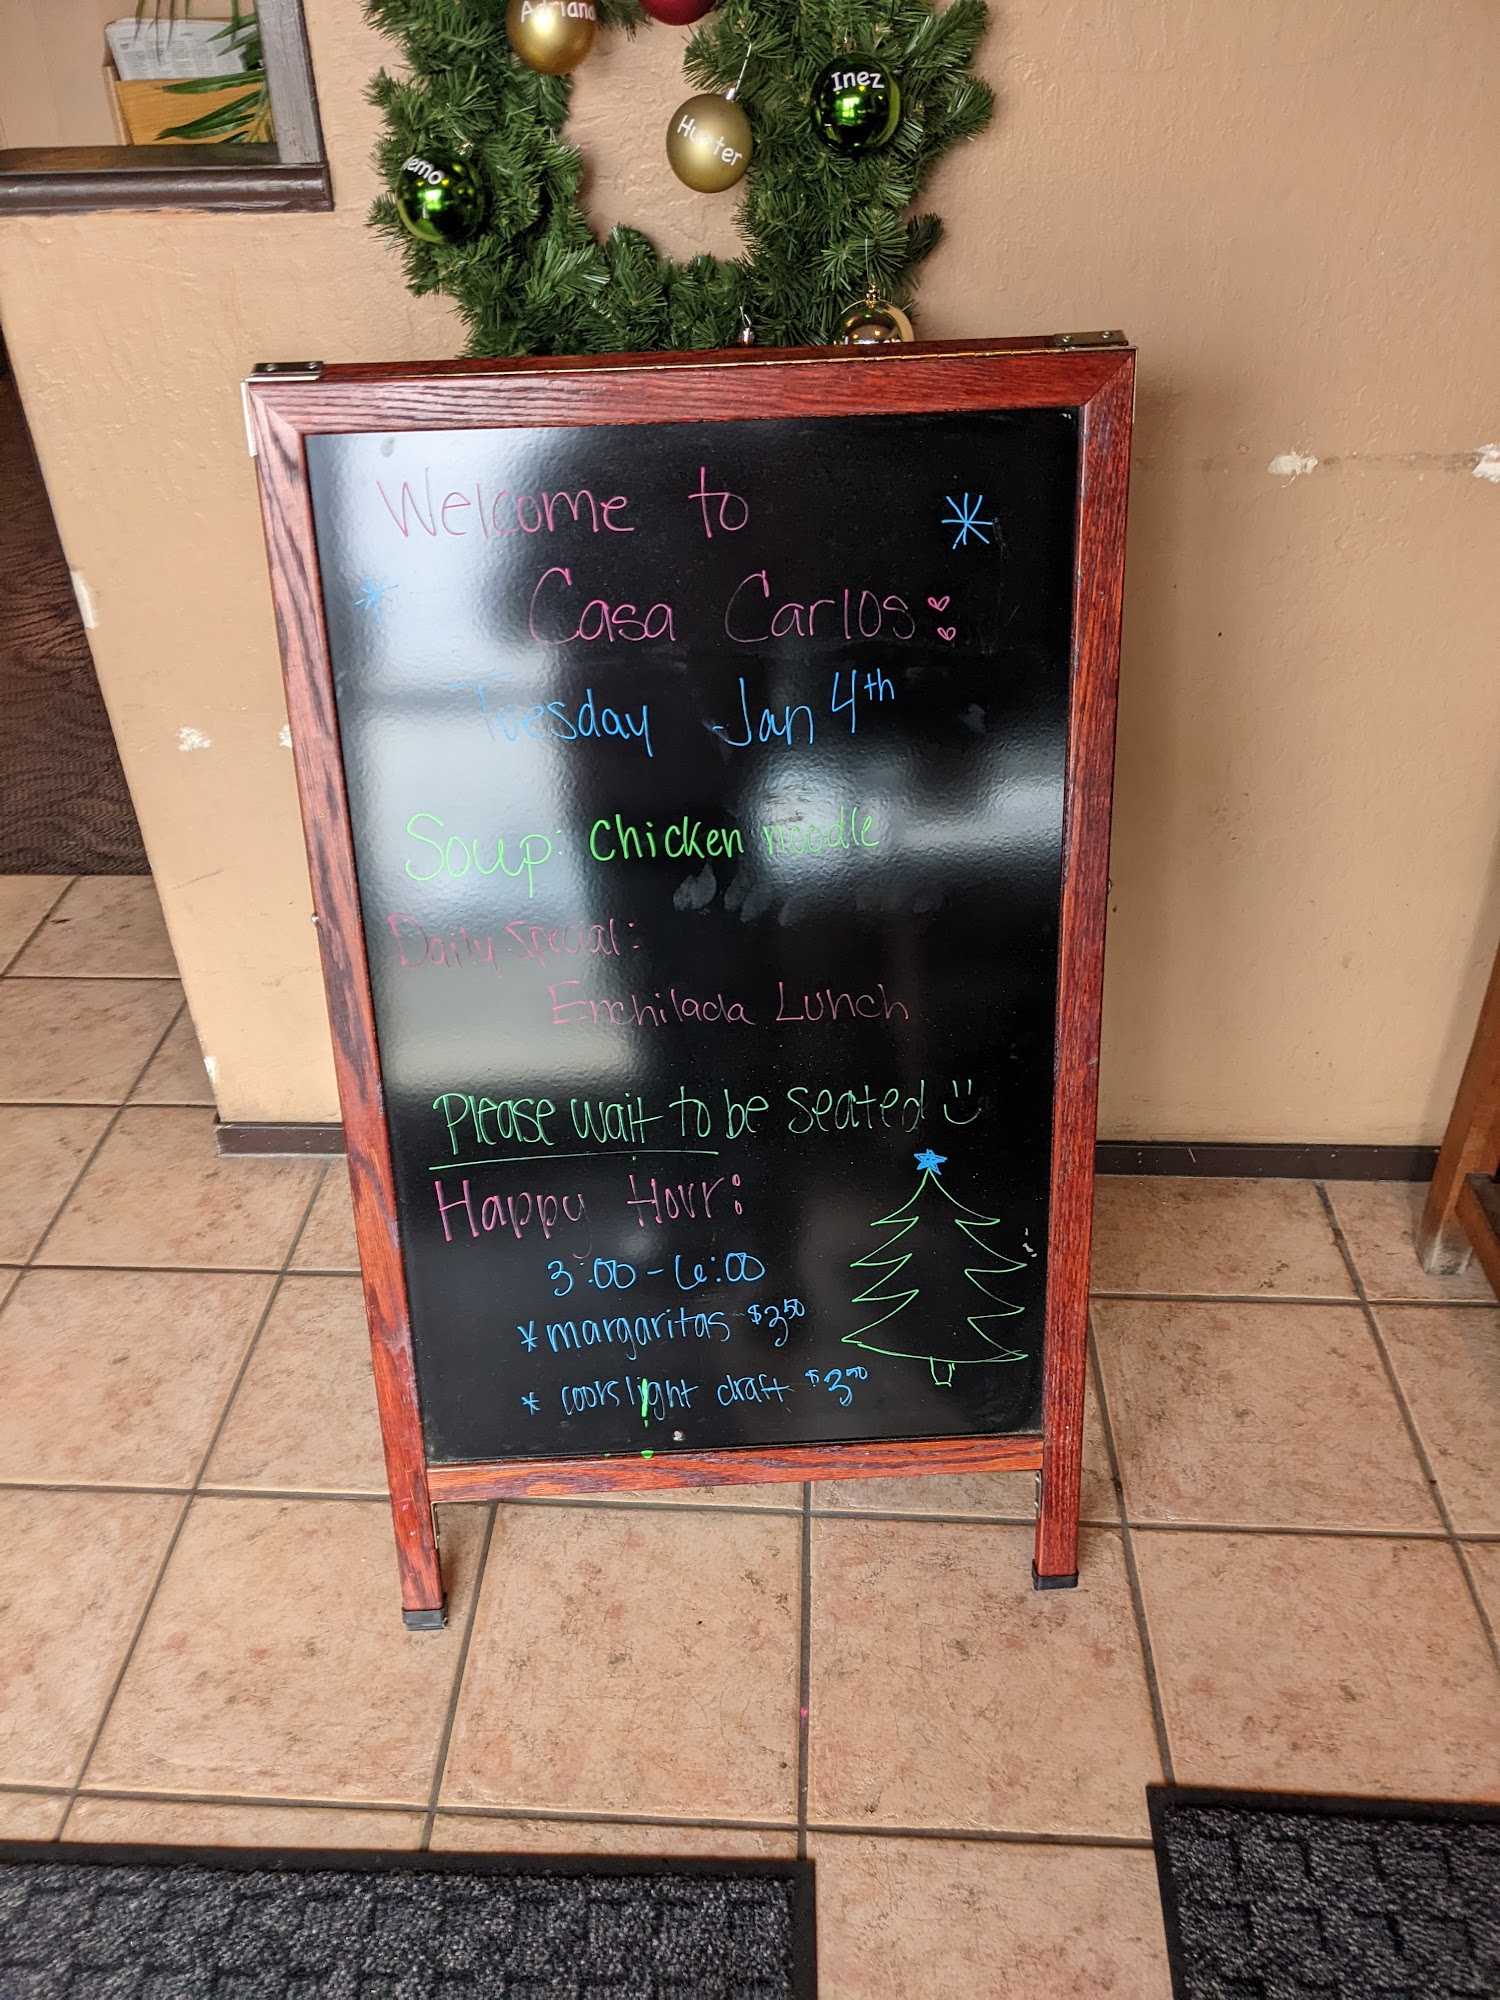 Adriana
Inez
Hunter
emo
Welcome to
Casa Carlos:
Tuesday Jan 4th
Soup: Chicken noodle
Daily Special:
Enchilada Lunch
Please wait to be seated
Happy Hour:
3:00 - 6:00
* margaritas $3.50
* coors light draft $3.50